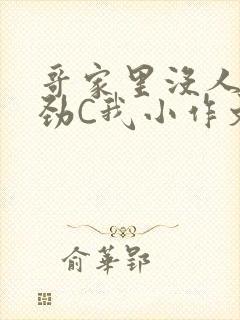 哥家里没人
劲C我小作文
俞華郢